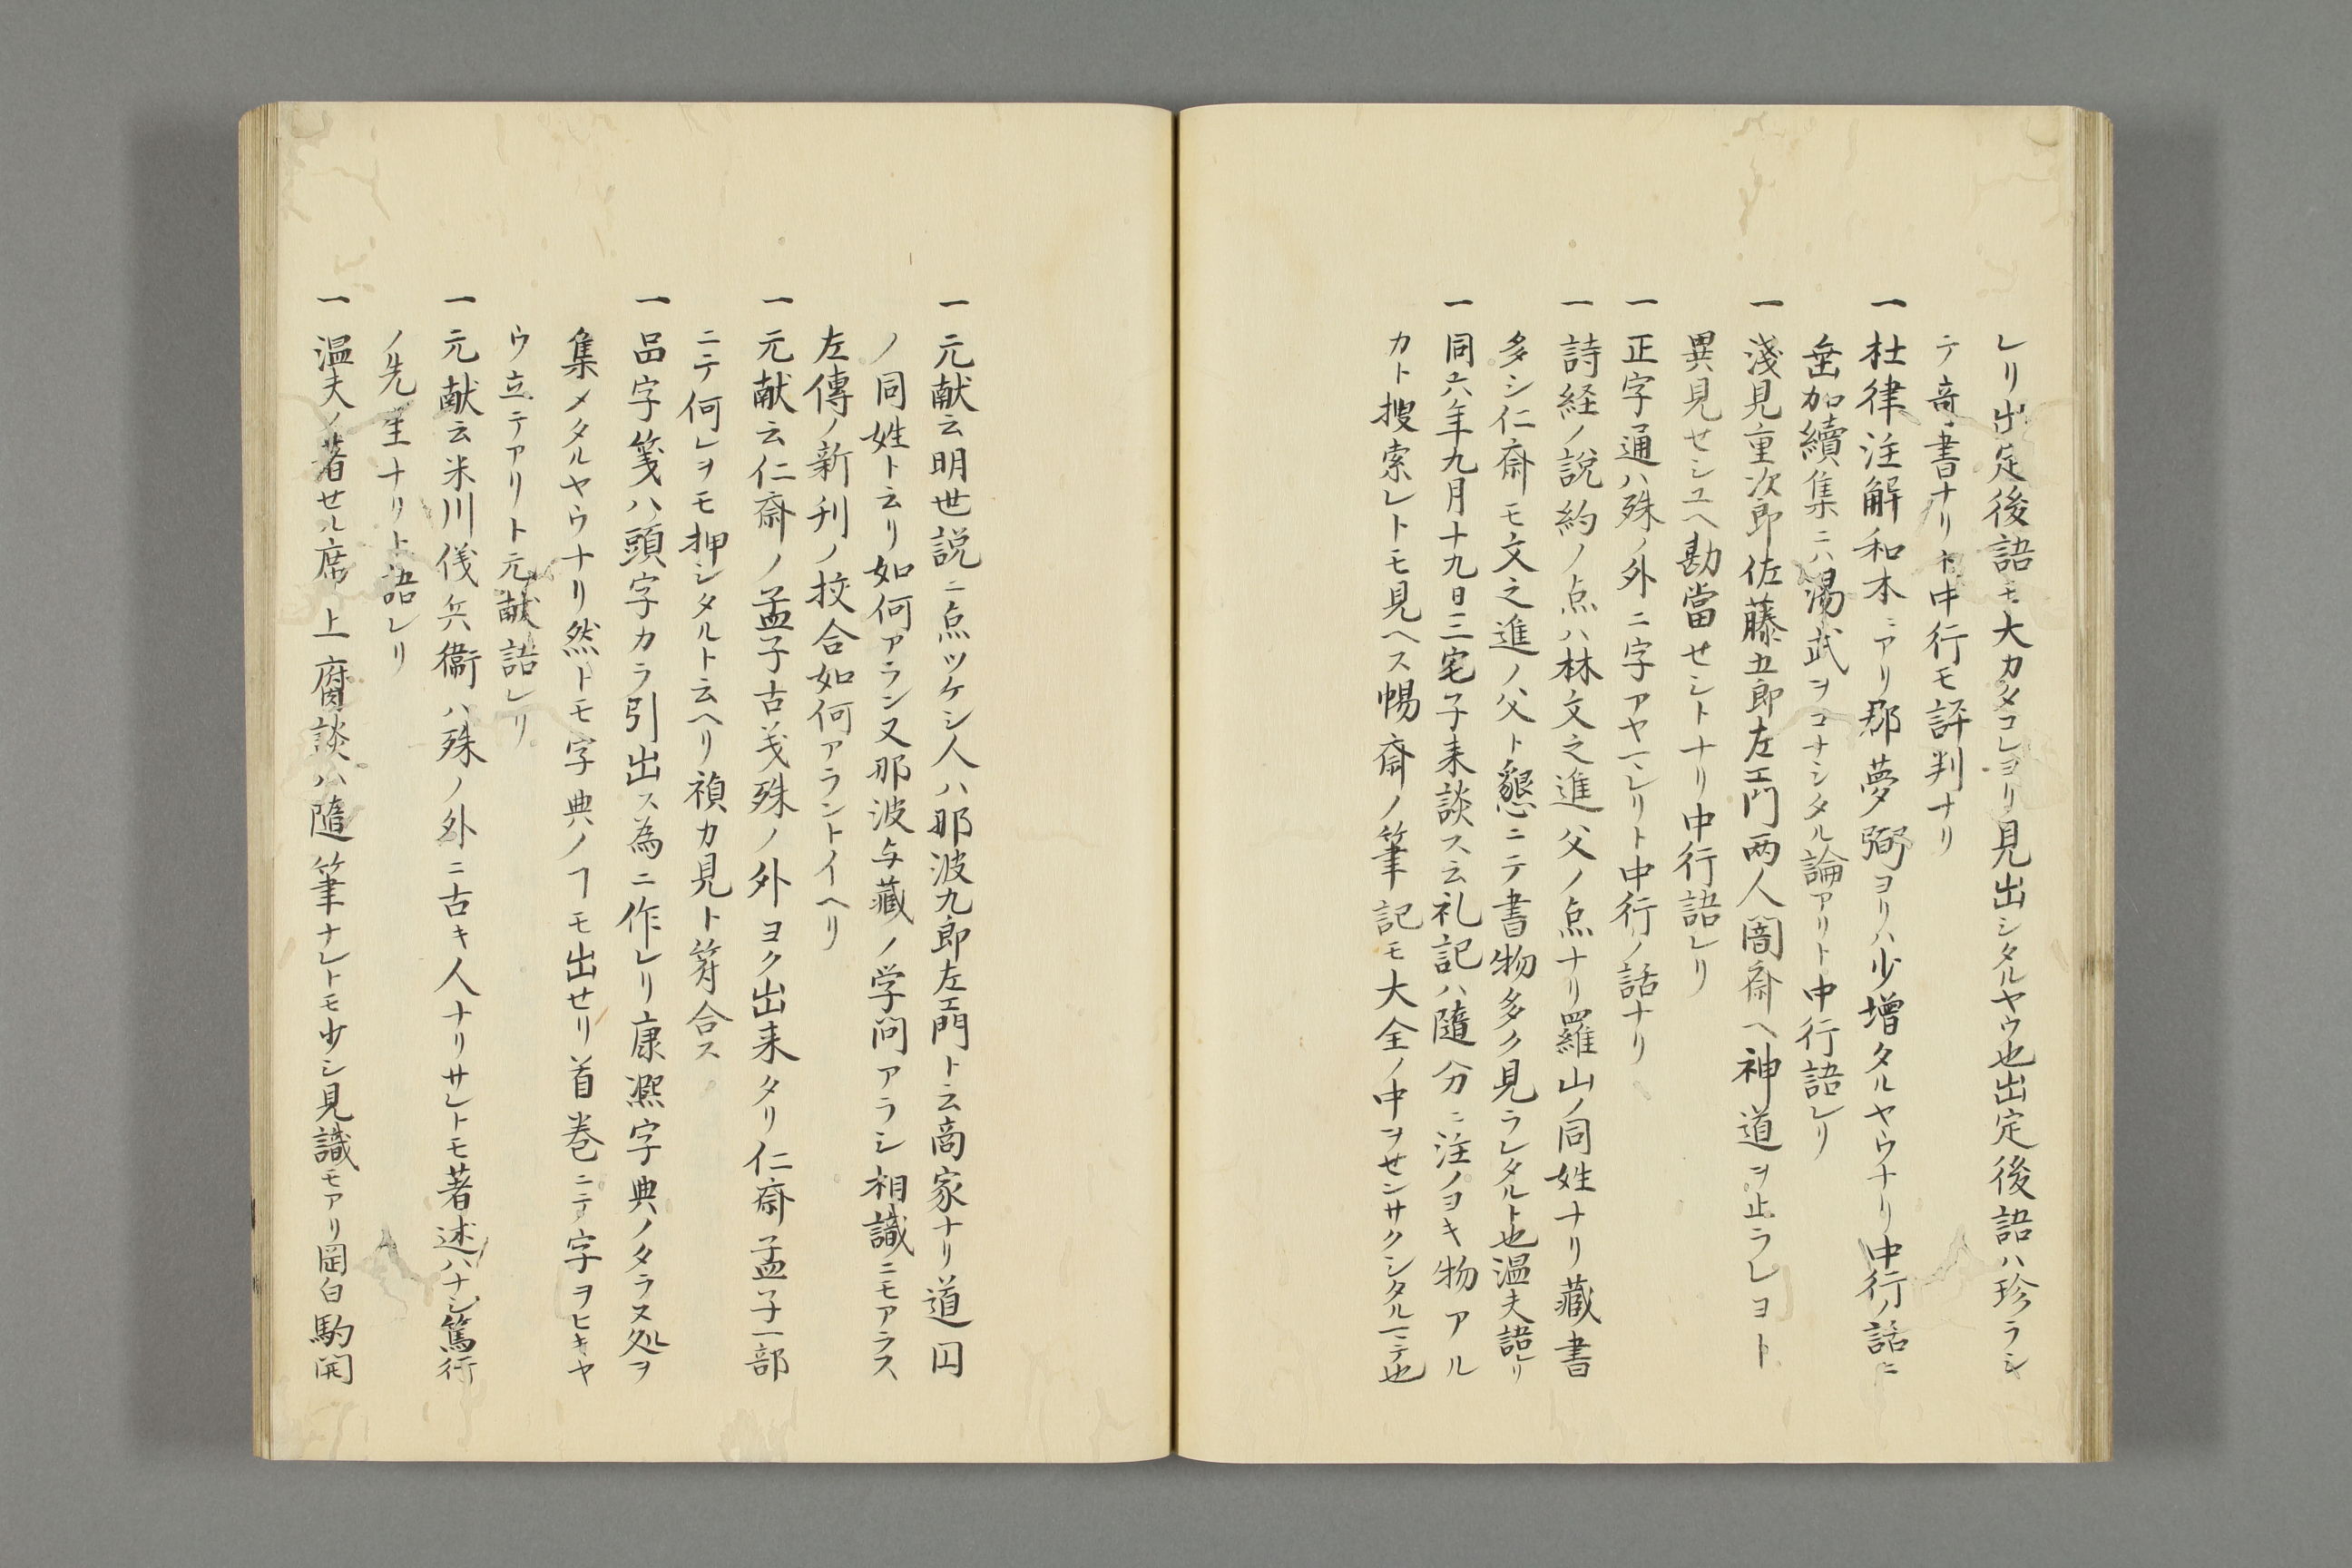 レリ出定後語モ大カタコレヨリ見出シタルヤウ也出定後語ハ珍ラシ
テ竒書ナリト中行モ評判ナリ
一 杜律注解和本ニアリ那夢弼ヨリハ少増タルヤウナリ中行ノ話ニ
垂加續集ニハ湯武ヲコナシタル論アリト中行語レリ
一 淺見重次郎佐藤五郎左エ門両人闇斎ヘ神道ヲ止ラレヨト
異見せシユヘ勘當せシトナリ中行語レリ
一 正字通ハ殊ノ外ニ字アヤマレリト中行ノ話ナリ
一 詩経ノ説約ノ点ハ林文之進父ノ点ナリ羅山ノ同姓ナリ藏書
多シ仁斎モ文之進ノ父ト懇ニテ書物多ク見ラレタルト也温夫語レリ
一 同六年九月十九日三宅子来談ス云礼記ハ隨分ニ注ノヨキ物アル
カト捜索レトモ見ヘス惕斎ノ筆記モ大全ノ中ヲせンサクシタルマテ也
一 元献云明世説ニ点ツケシ人ハ那波九郎左エ門ト云商家ナリ道円
ノ同姓ト云リ如何アラン又那波与藏ノ学問アラシ相識ニモアラス
左傳ノ新刊ノ挍合如何アラントイヘリ
一 元献云仁斎ノ孟子古义殊ノ外ヨク出来タリ仁斎孟子一部
ニテ何レヲモ押シタルト云ヘリ禎カ見ト符合ス
一 品字箋ハ頭字カラ引出ス為ニ作レリ康熈字典ノタラヌ処ヲ
集メタルヤウナリ然トモ字典ノヿモ出せリ首巻ニテ字ヲヒキヤ
ウ立テアリト元献語レリ
一 元献云米川儀兵衞ハ殊ノ外ニ古キ人ナリサレトモ著述ハナシ篤行
ノ先生ナリト語レリ
一 温夫ノ著せル席上腐談ハ隨筆ナレトモ少シ見識モアリ岡白駒開